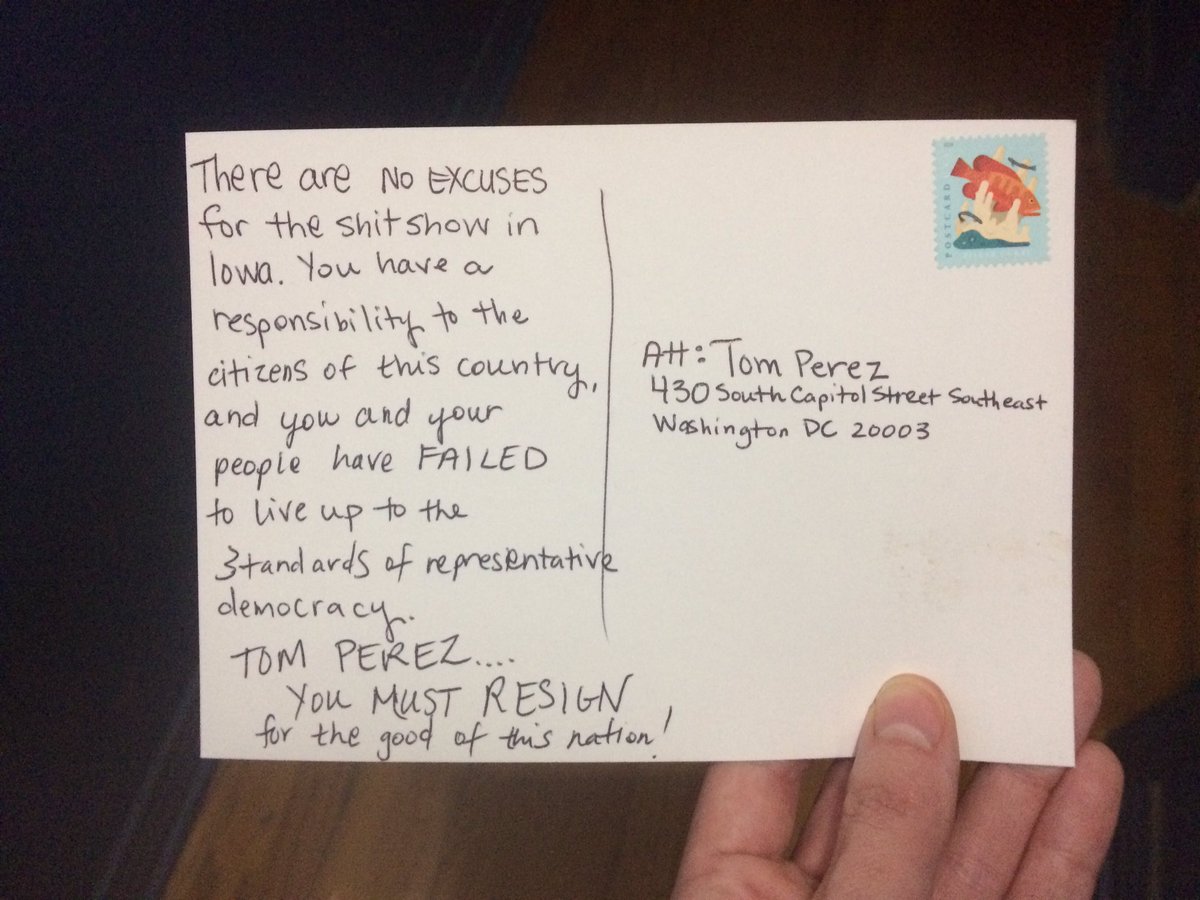 There are NO EXCUSES
for the shitshow in
Iowa. You have a
responsibility to the
citizens of this country,
and you and your
people have FAILED
to live up to the
standards of representative
democracy.
TOM PEREZ....
YOU MUST RESIGN
for the good of this nation!
POSTCARD
Att: Tom Perez
430 South Capitol Street Southeast
Washington DC 20003